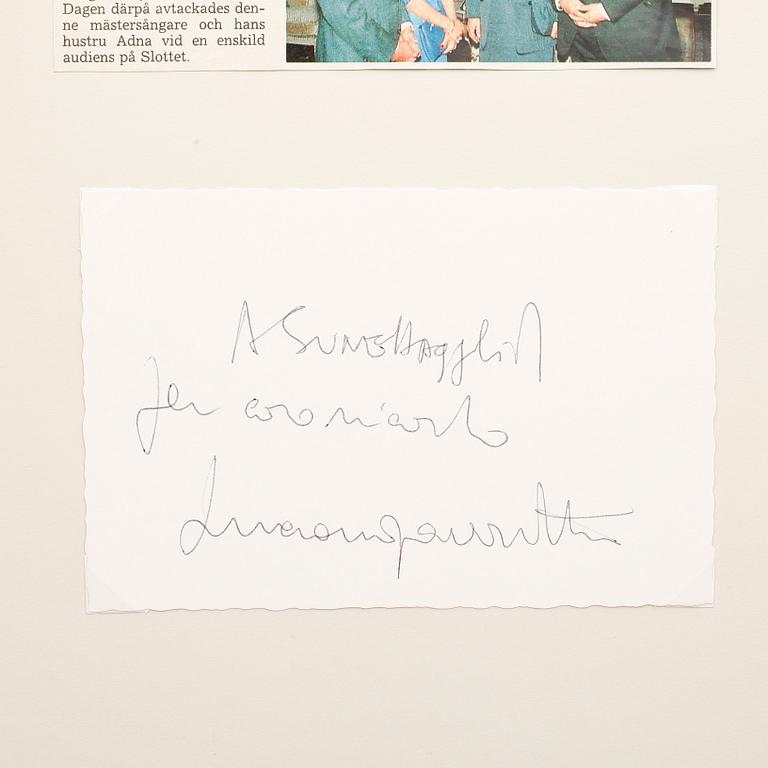 Dagen därpå avtackades den-
ne mästersångare och hans
hustru Adna vid en enskild
audiens på Slottet.
A SUNE Hägglöf
Luciano Pavarotti